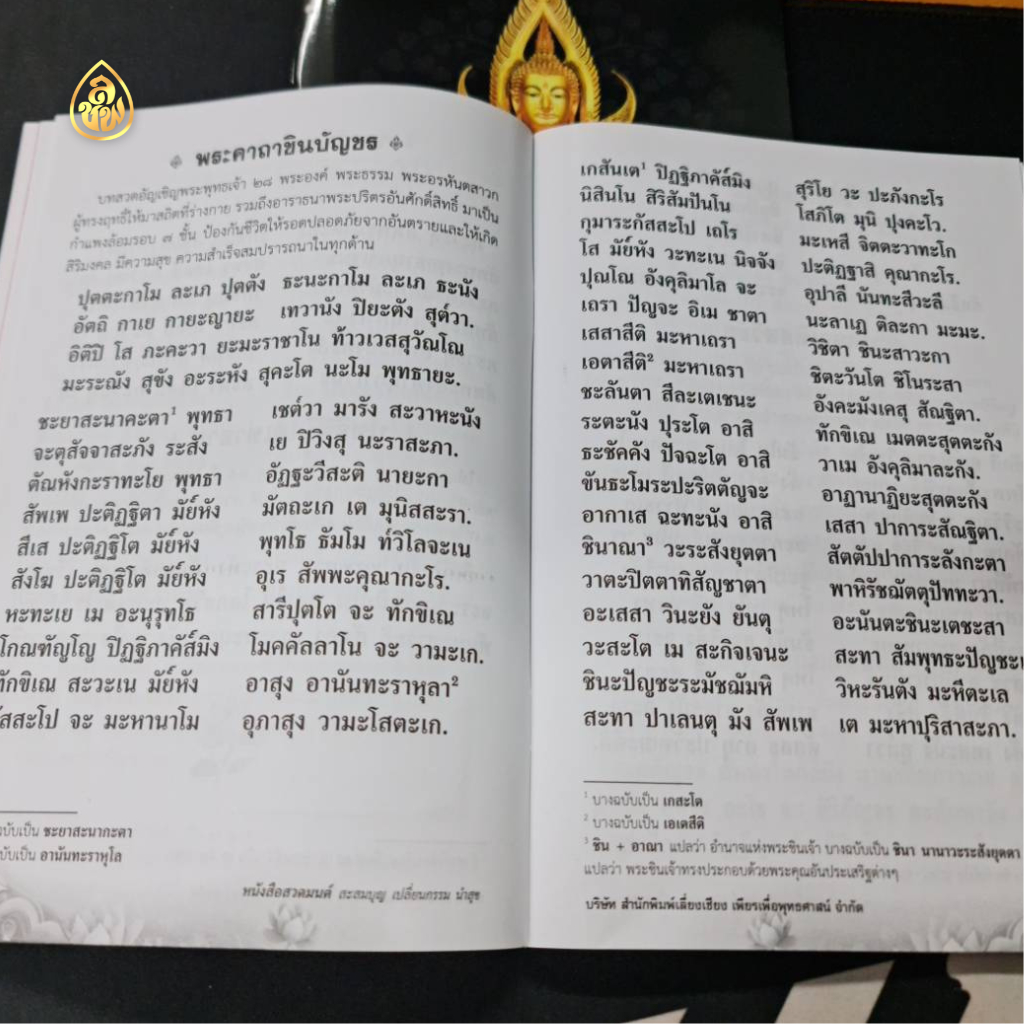 พระคาถาชินบัญชร
บทสวดอัญเชิญพระพุทธเจ้า ๒๘ พระองค์ พระธรรม พระอรหันตสาวก
ผู้ทรงฤทธิ์ให้มาสถิตที่ร่างกาย รวมถึงอาราธนาพระปริตรอันศักดิ์สิทธิ์ มาเป็น
กำแพงล้อมรอบ ๗ ชั้น ป้องกันชีวิตให้รอดปลอดภัยจากอันตรายและให้เกิด
สิริมงคล มีความสุข ความสำเร็จสมปรารถนาในทุกด้าน
ปุตตะกาโม ละเภ ปุตตัง ธะนะกาโม ละเภ ธะนัง
อัตถิ กาเย กายะญายะ เทวานัง ปิยะตัง สุต์วา.
อิติปิ โส ภะคะวา ยะมะราชาโน ท้าวเวสสุวัณโณ
มะระณัง สุขัง อะระหัง สุคะโต นะโม พุทธายะ.
ชะยาสะนาคะตา¹ พุทธา เชต์วา มารัง สะวาหะนัง
จะตุสัจจาสะภัง ระสัง เย ปิวิงสุ นะราสะภา.
ตัณหังกะราทะโย พุทธา อัฏฐะวีสะติ นายะกา
สัพเพ ปะติฏฐิตา มัย์หัง มัตถะเก เต มุนิสสะรา.
สีเส ปะติฏฐิโต มัย์หัง พุทโธ ธัมโม ท์วิโลจะเน
สังโฆ ปะติฏฐิโต มัย์หัง อุเร สัพพะคุณากะโร.
หะทะเย เม อะนุรุทโธ สารีปุตโต จะ ทักขิเณ
โกณฑัญโญ ปิฏฐิภาคัส์มิง โมคคัลลาโน จะ วามะเก.
ทักขิเณ สะวะเน มัย์หัง อาสุง อานันทะราหุลา²
ัสสะโป จะ มะหานาโม อุภาสุง วามะโสตะเก.
ฉบับเป็น ชะยาสะนากะตา
ฉบับเป็น อานันทะราหุโล
หนังสือสวดมนต์ สะสมบุญ เปลี่ยนกรรม นำสุข
เกสันเต¹ ปิฏฐิภาคัส์มิง สุริโย วะ ปะภังกะโร
นิสินโน สิริสัมปันโน โสภิโต มุนิ ปุงคะโว.
กุมาระกัสสะโป เถโร มะเหสี จิตตะวาทะโก
โส มัย์หัง วะทะเน นิจจัง ปะติฏฐาสิ คุณากะโร.
ปุณโณ อังคุลิมาโล จะ อุปาลี นันทะสีวะลี
เถรา ปัญจะ อิเม ชาตา นะลาเฏ ติละกา มะมะ.
เสสาสีติ มะหาเถรา วิชิตา ชินะสาวะกา
เอตาสีติ² มะหาเถรา ชิตะวันโต ชิโนระสา
ชะลันตา สีละเตเชนะ อังคะมังเคสุ สัณฐิตา.
ระตะนัง ปุระโต อาสิ ทักขิเณ เมตตะสุตตะกัง
ธะชัคคัง ปัจฉะโต อาสิ วาเม อังคุลิมาละกัง.
ขันธะโมระปะริตตัญจะ อาฏานาฏิยะสุตตะกัง
อากาเส ฉะทะนัง อาสิ เสสา ปาการะสัณฐิตา.
ชินาณา³ วะระสังยุตตา สัตตัปปาการะลังกะตา
วาตะปิตตาทิสัญชาตา พาหิรัชฌัตตุปัททะวา.
อะเสสา วินะยัง ยันตุ อะนันตะชินะเตชะสา
วะสะโต เม สะกิจเจนะ สะทา สัมพุทธะปัญชะเ
ชินะปัญชะระมัชฌัมหิ วิหะรันตัง มะหีตะเล
สะทา ปาเลนตุ มัง สัพเพ เต มะหาปุริสาสะภา.
¹ บางฉบับเป็น เกสะโต
² บางฉบับเป็น เอเตสีติ
³ ชิน + อาณา แปลว่า อำนาจแห่งพระชินเจ้า บางฉบับเป็น ชินา นานาวะระสังยุตตา
แปลว่า พระชินเจ้าทรงประกอบด้วยพระคุณอันประเสริฐต่างๆ
บริษัท สำนักพิมพ์เลี่ยงเชียง เพียรเพื่อพุทธศาสน์ จำกัด